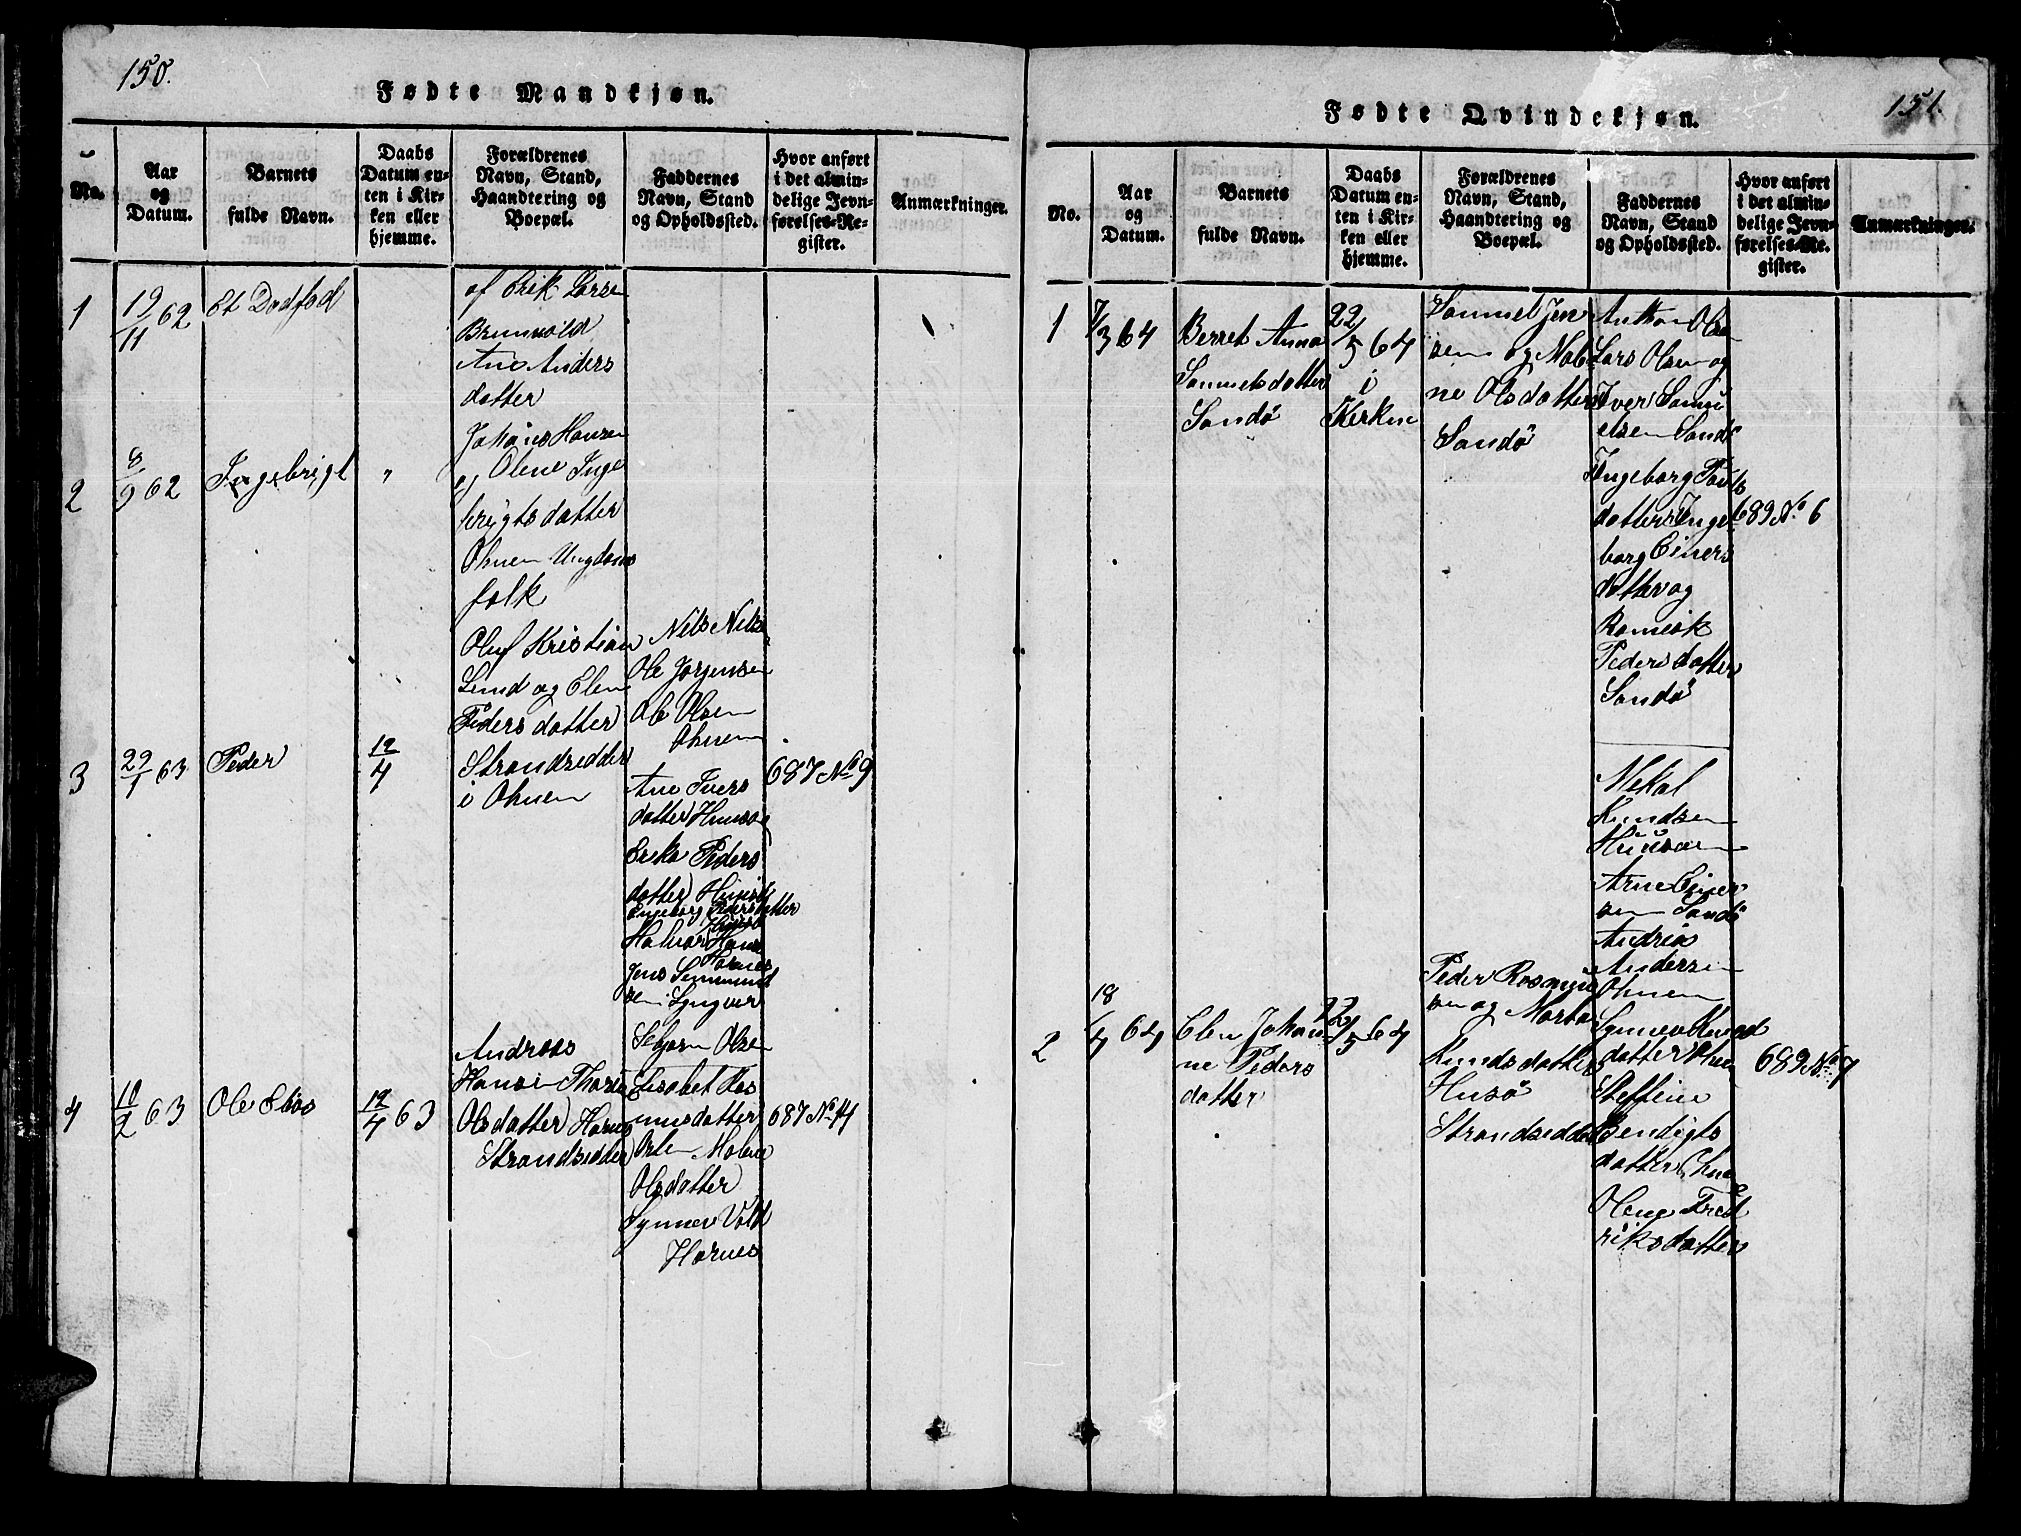 150.
Fødte Mandkjøn.
No.
Aar
og
Datum.
Barnets
fulde Navn.
Daabs
Datum en-
ten i Kir-
ken eller
hjemme.
Forældrenes
Navn, Stand,
Haandtering og
Boepæl.
Faddernes
Navn, Stand
og Opholdssted.
Hvor anført
i det almin-
delige Jevn-
førelses-Re-
gister.
Anmærkninger.
1
19/11 62
Et Dødfød
af Erik Larsen
Brunvold
Ane Anders
datter
2
8/9 62
Ingebrigt
"
Johans Hansen
og Oline Inge
brigts datter
Ohnen Ungdoms
folk
3
29/1 63
Peder
12/4
Oluf Kristian
Lund og Elen
Peders datter
Strandsidder
i Ohnen
Nils Nilsen
Ole Jørgensen
Ole Olsen
Ohnen
Ane Ivers
datter
Erika Peders
datter
Ingeborg Pedersdatter
Halvor Hans
Hornes
Jens
sen Syngver
687 No 9
4
10/2 63
Ole
12/4 63
Andreas
Hansen
Olsdatter Hornes
Strandsidder
Olsen
Elisabet Ras
musdatter
Malene
Olsdatter
Synnev Vold
Hornes
687 No 14
151.
Fødte Qvindekjøn.
No.
Aar
og
Datum.
Barnets
fulde Navn.
Daabs
Datum en-
ten i Kir-
ken eller
hjemme.
Forældrenes
Navn, Stand,
Haandtering og
Boepæl.
Faddernes
Navn, Stand
og Opholdssted.
Hvor anført
i det almin-
delige Jevn-
førelses-Re-
gister.
Anmærkninger.
1
7/3 64
Berret Anna
Samuels datter
Sandø
22/5 64
i
Kirken
Samuel Jen
sen og Mali
ne Olsdatter
Sandø
Anthon Olsen
Lars Olsen og
Iver Samu
elsen Sandø
Ingeborg Pauls
datter Inge
borg Einers
datter og
Peders datter
Sandø
Mikal
Knudsen
Arne Einer
sen Sandø
Andreas
Andersen
Ohnen
689 No 6
2
18/4 64
Elen Johan
ne Peders
datter
22/5 64
Peder Rasmus
sen og Marta
Knudsdatter
Husø
Strandsidder
Synnev Knuds
datter
Steffine
Bendigts
datter
Oline Fred
riksdatter
689 No 7